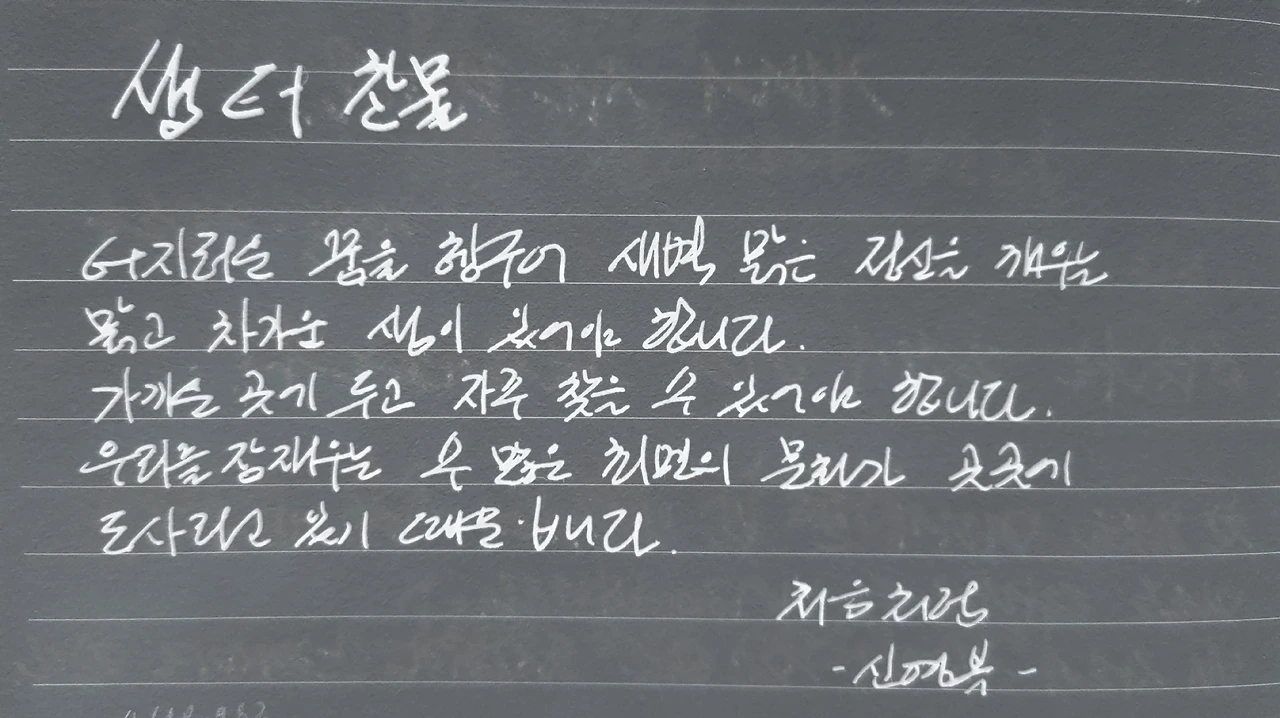 샘터 찬물
어지러운 꿈을 헹구어 새벽 맑은 정신을 깨우는
맑고 차가운 샘이 있어야 합니다.
가까운 곳에 두고 자주 찾을 수 있어야 합니다.
우리를 잠재우는 수 많은 최면의 문화가 곳곳에
도사리고 있기 때문입니다.
처음처럼
- 신영복 -